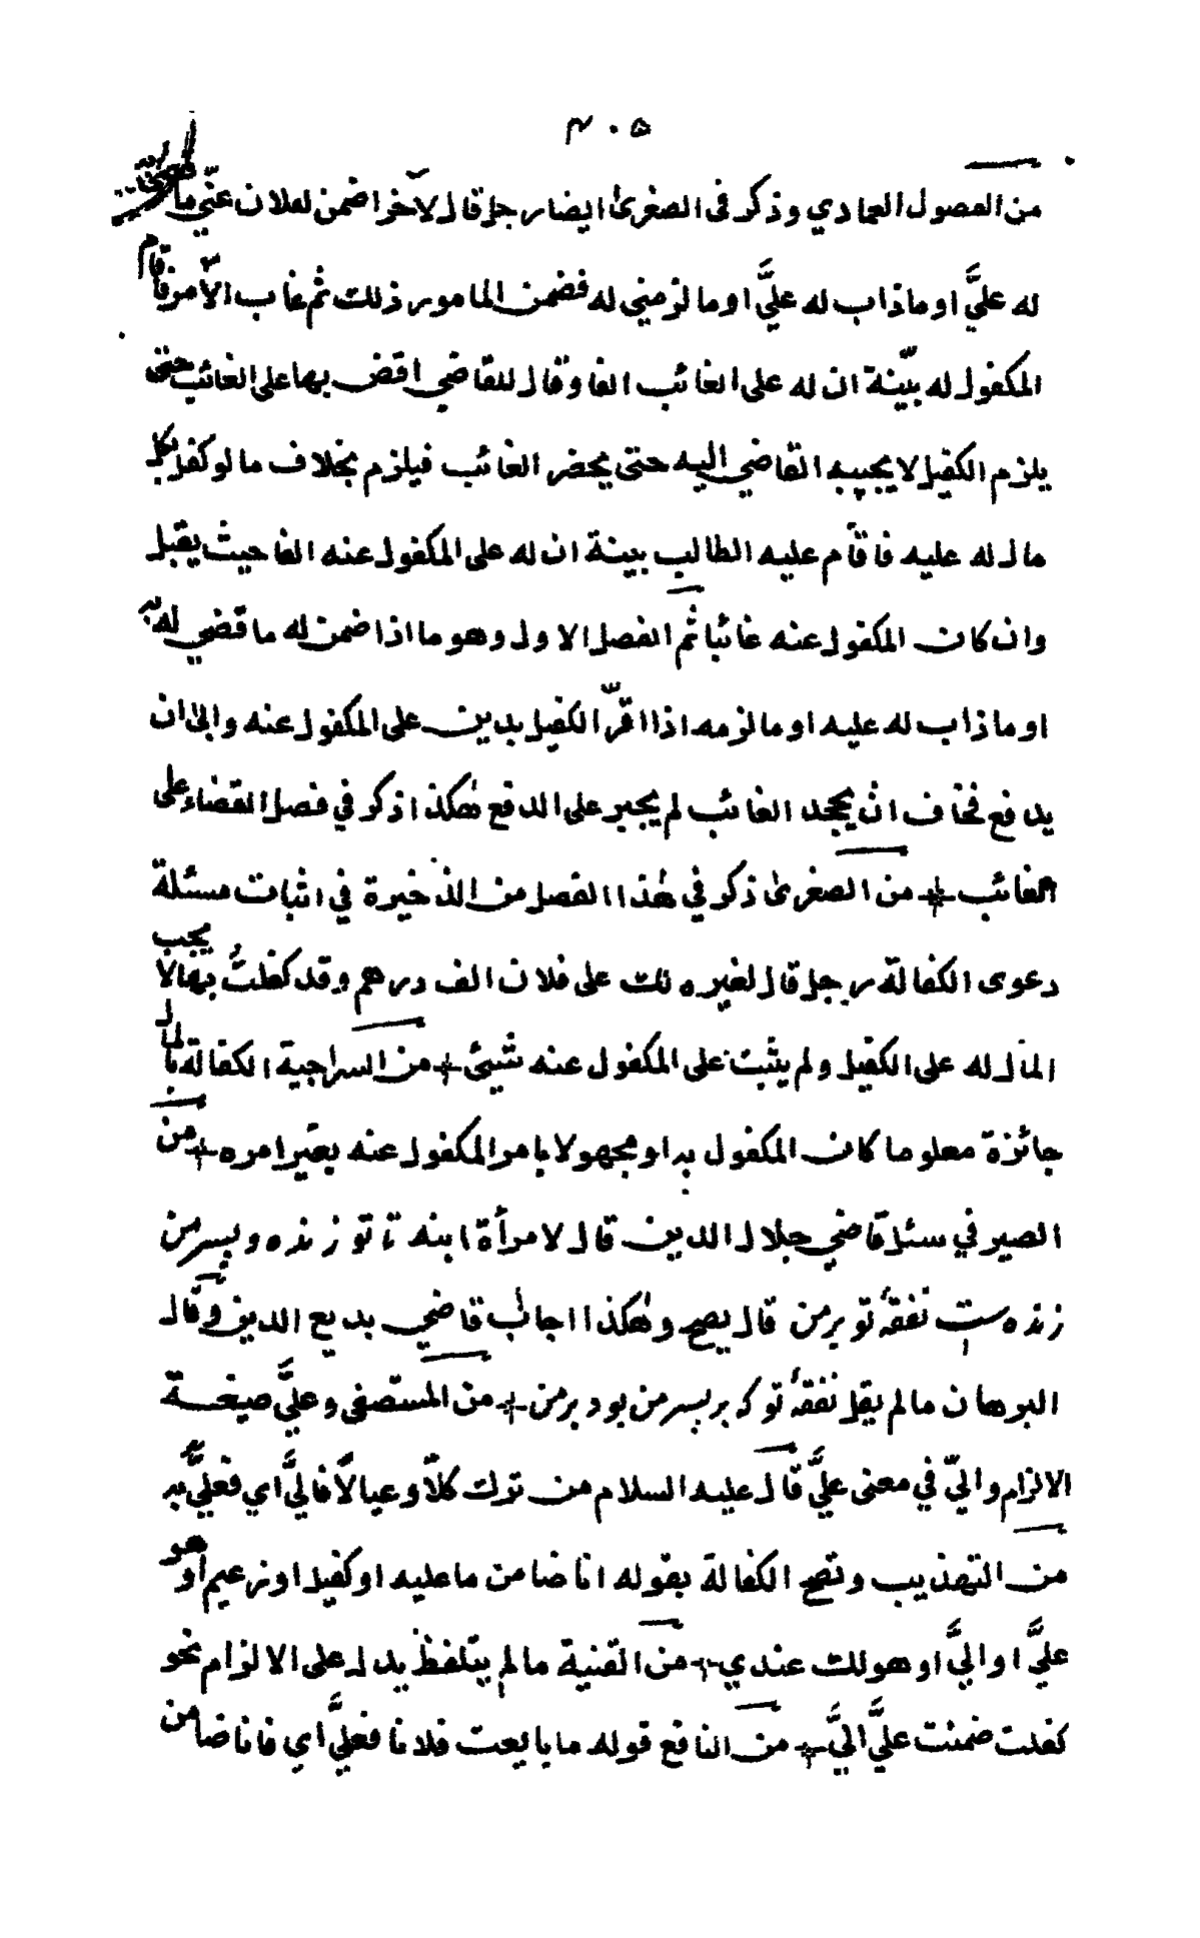 ۴۰۵
من الفصول العمادي وذكر في الصغرىٰ ايضا رجل قال لآخر اضمن لفلان عنّي ما
له عليَّ او ما ذاب له عليَّ او ما لزمني له فضمن المامور ذلك ثم غاب الآمر فاقام
المكفول له بيّنة ان له على الغائب الفا وقال للقاضي اقض بها على الغائب حتى
يلزم الكفيل لا يجيبه القاضي اليه حتى يحضر الغائب فيلزم بخلاف ما لو كفل بكل
مال له عليه فاقام عليه الطالب بينة ان له على المكفول عنه الفا حيث يقبل
وان كان المكفول عنه غائبا ثم الفصل الاول وهو ما اذا ضمن له ما قضي له به
او ما ذاب له عليه او ما لزمه اذا اقرّ الكفيل بدين على المكفول عنه وابىٰ ان
يدفع فخاف ان يجحد الغائب لم يجبر على الدفع هٰكذا ذكر في فصل القضاء على
الغائب من الصغرىٰ ذكر في هٰذا الفصل من الذخيرة في اثبات مسئلة
دعوى الكفالة رجل قال لغيره لك على فلان الف درهم وقد كفلتُ بها لا يجب
المال له على الكفيل ولم يثبت على المكفول عنه شيئ من السراجية الكفالة بالمال
جائزة معلوما كان المكفول به او مجهولا بامر المكفول عنه بغير امره من
الصيرفي سئل قاضي جلال الدين قال لامرأة ابنه تا تو زنده و پسر من
زنده ست نفقهٔ تو بر من قال يصح وهٰكذا اجاب قاضي بديع الدين وقال
البرهان ما لم يقل نفقهٔ تو كه بر پسر من بود بر من من المستصفى وعليَّ صيغة
الالزام واليّ في معنى عليَّ قال عليه السلام من ترك كلّا وعيالًا فاليَّ اي فعليَّ به
من التهذيب وتصح الكفالة بقوله انا ضامن ما عليه او كفيل او زعيم او هو
عليَّ او اليَّ او هو لك عندي من القنية ما لم يتلفظ يدل على الالزام نحو
كفلت ضمنت عليَّ اليَّ من النافع قوله ما بايعت فلانا فعليَّ اي فانا ضامن